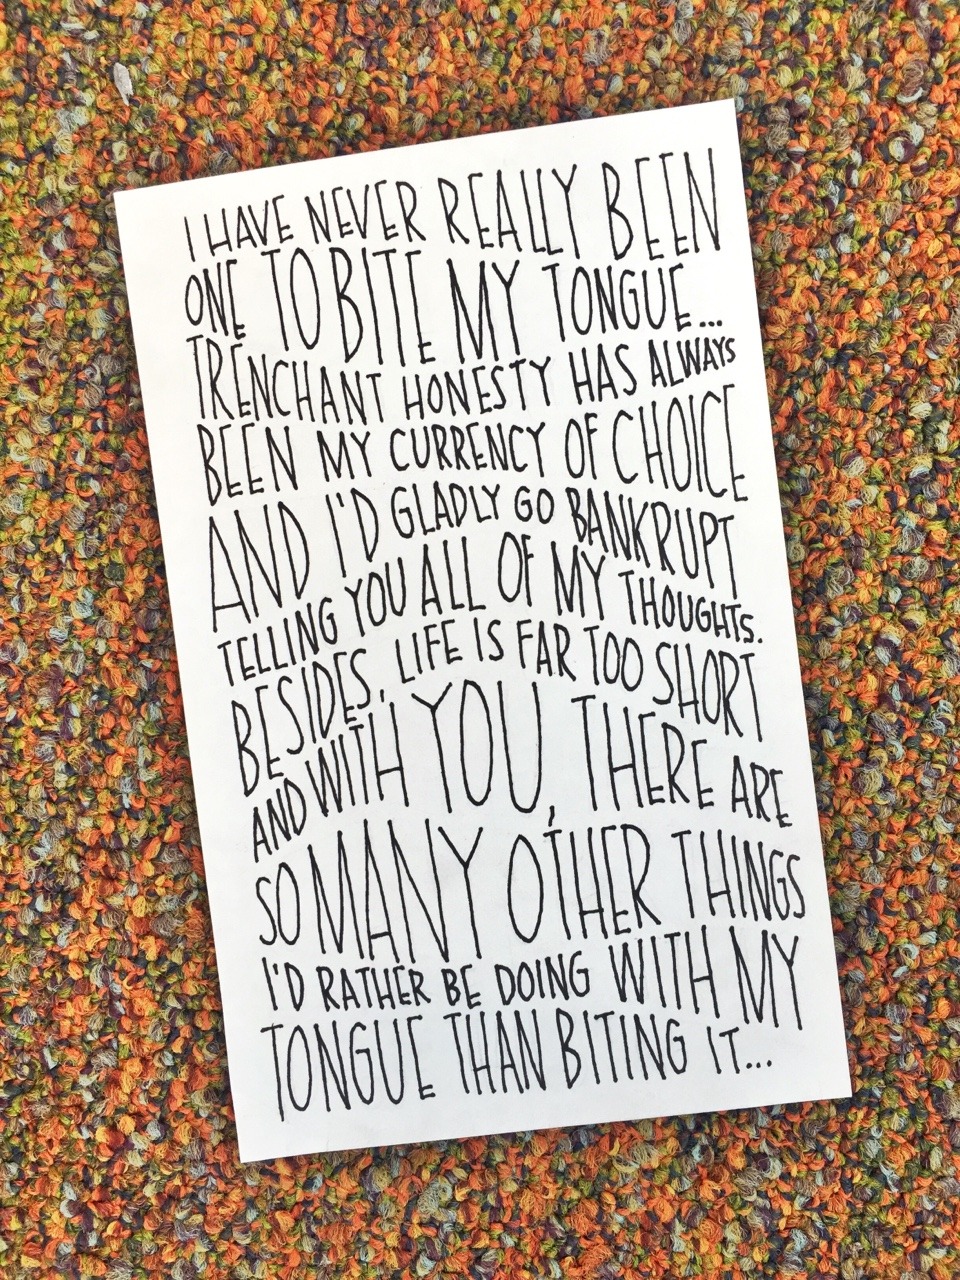 I HAVE NEVER REALLY BEEN
ONE TO BITE MY TONGUE...
TRENCHANT HONESTY HAS ALWAYS
BEEN MY CURRENCY OF CHOICE
AND I'D GLADLY GO BANKRUPT
TELLING YOU ALL OF MY THOUGHTS.
BESIDES, LIFE IS FAR TOO SHORT
AND WITH YOU, THERE ARE
SO MANY OTHER THINGS
I'D RATHER BE DOING WITH MY
TONGUE THAN BITING IT...